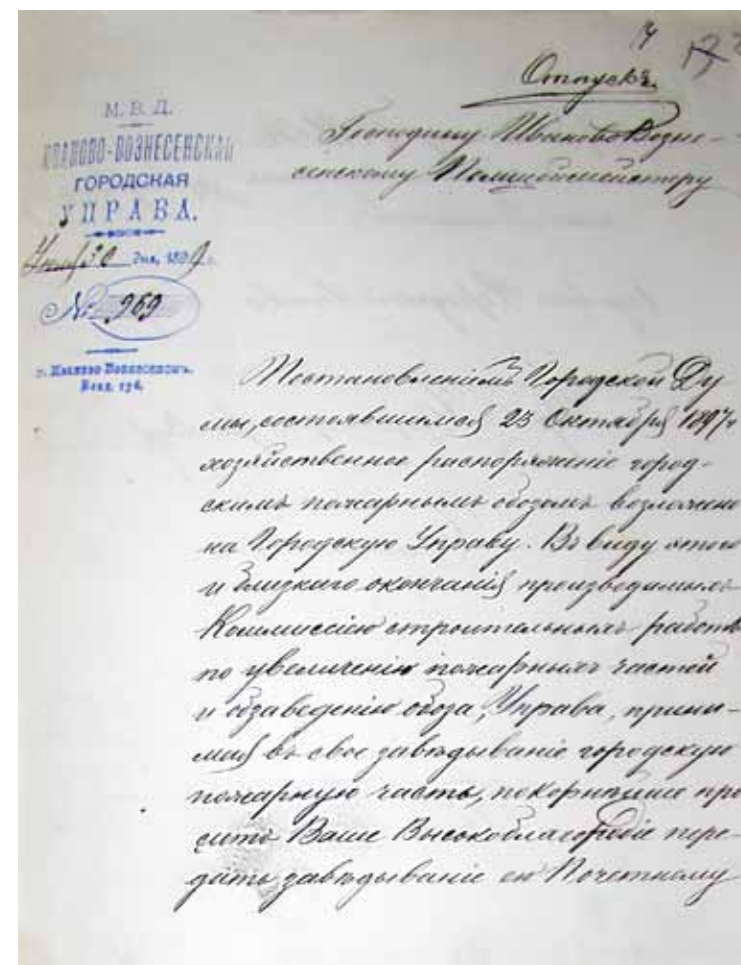 14
Отпускъ.
Господину Иваново-Возне-
сенскому Полицiймейстеру
М. В. Д.
ИВАНОВО-ВОЗНЕСЕНСКАЯ
ГОРОДСКАЯ
УПРАВА.
30 дня, 189
№ 969
г. Иваново-Вознесенскъ.
Влад. губ.
Постановленiемъ Городской Ду
мы, состоявшимся 23 Октября 1897 г
хозяйственное распоряженiе город-
скимъ пожарнымъ обозомъ возложено
на Городскую Управу. Въ виду этого
и близкаго окончанiя производимыхъ
Коммиссiею строительныхъ работъ
по увеличенiю пожарныхъ частей
и обзаведенiю обоза, Управа, прини-
мая въ свое завѣдыванiе городскую
пожарную часть, покорнѣйше про
ситъ Ваше Высокоблагородiе пере-
дать завѣдыванiе ею Почетному